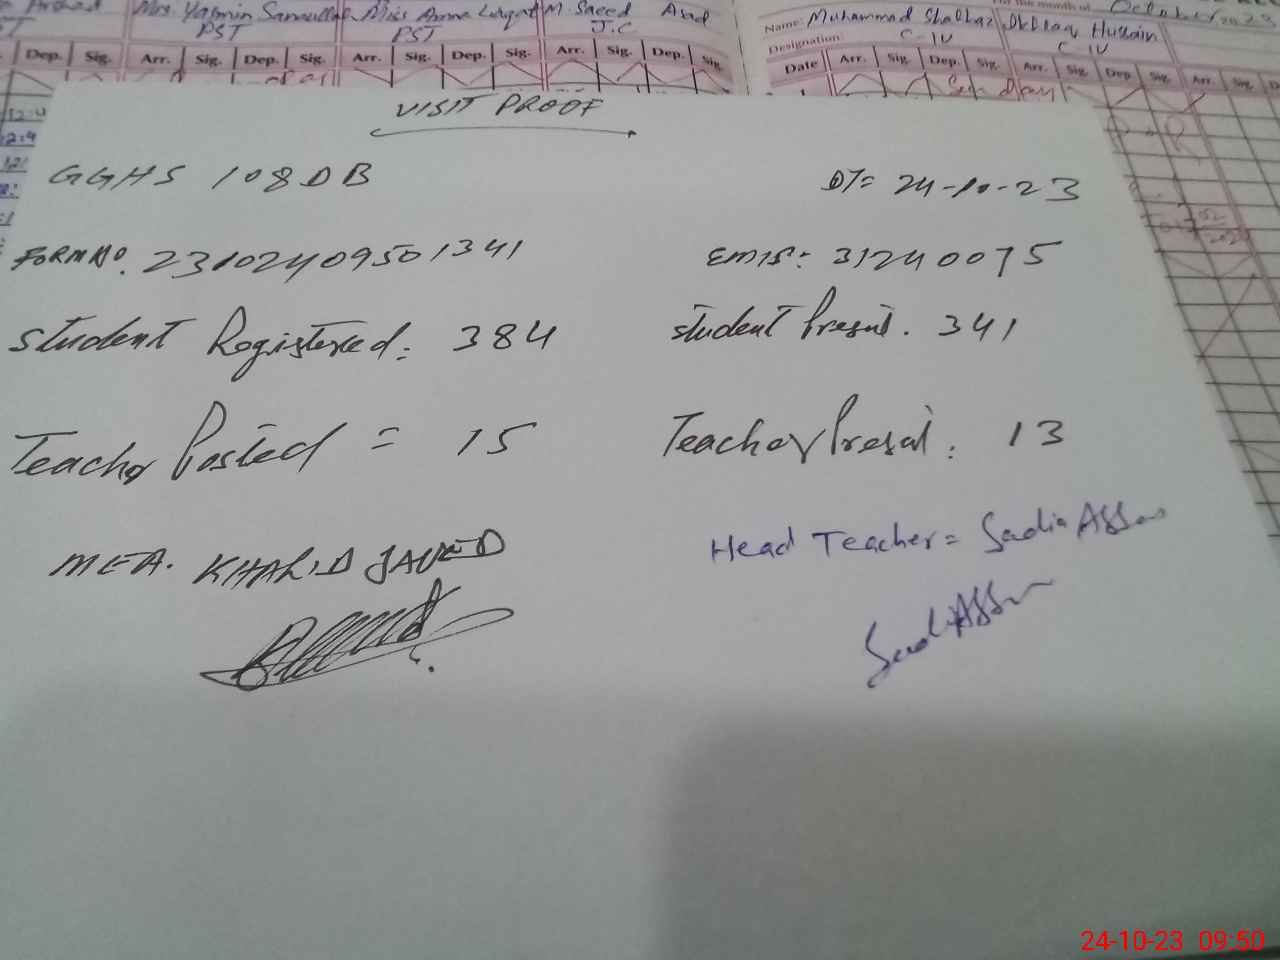 Mrs. Yasmin Samiullah Miss Amna Liaqat M. Saeed Asad
PST PST J.C
Dep. Sig. Arr. Sig. Dep. Sig. Arr. Sig. Dep. Sig. Arr. Sig. Dep. Sig.
For the month of October 2023
Name: Muhammad Shahbaz Ishtiaq Hussain
Designation: C-IV C-IV
Date Arr. Sig. Dep. Sig. Arr. Sig. Dep. Sig. Arr. Sig.
Sunday
VISIT PROOF
GGHS 108DB DT= 24-10-23
FORM NO. 2310240950 1341 EMIS: 31240075
Student Registered: 384 Student Present. 341
Teacher Posted = 15 Teacher Present: 13
MEA. KHALID JAVED Head Teacher = Sadia
24-10-23 09:50